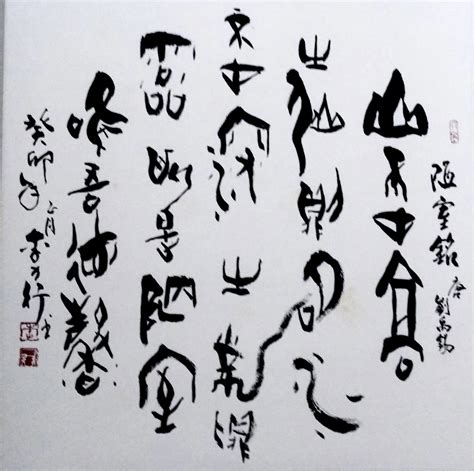 陋室銘 唐 劉禹錫
山不在高
有仙則名水
不在深有龍則
靈斯是陋室
唯吾德馨
癸卯年正月李行